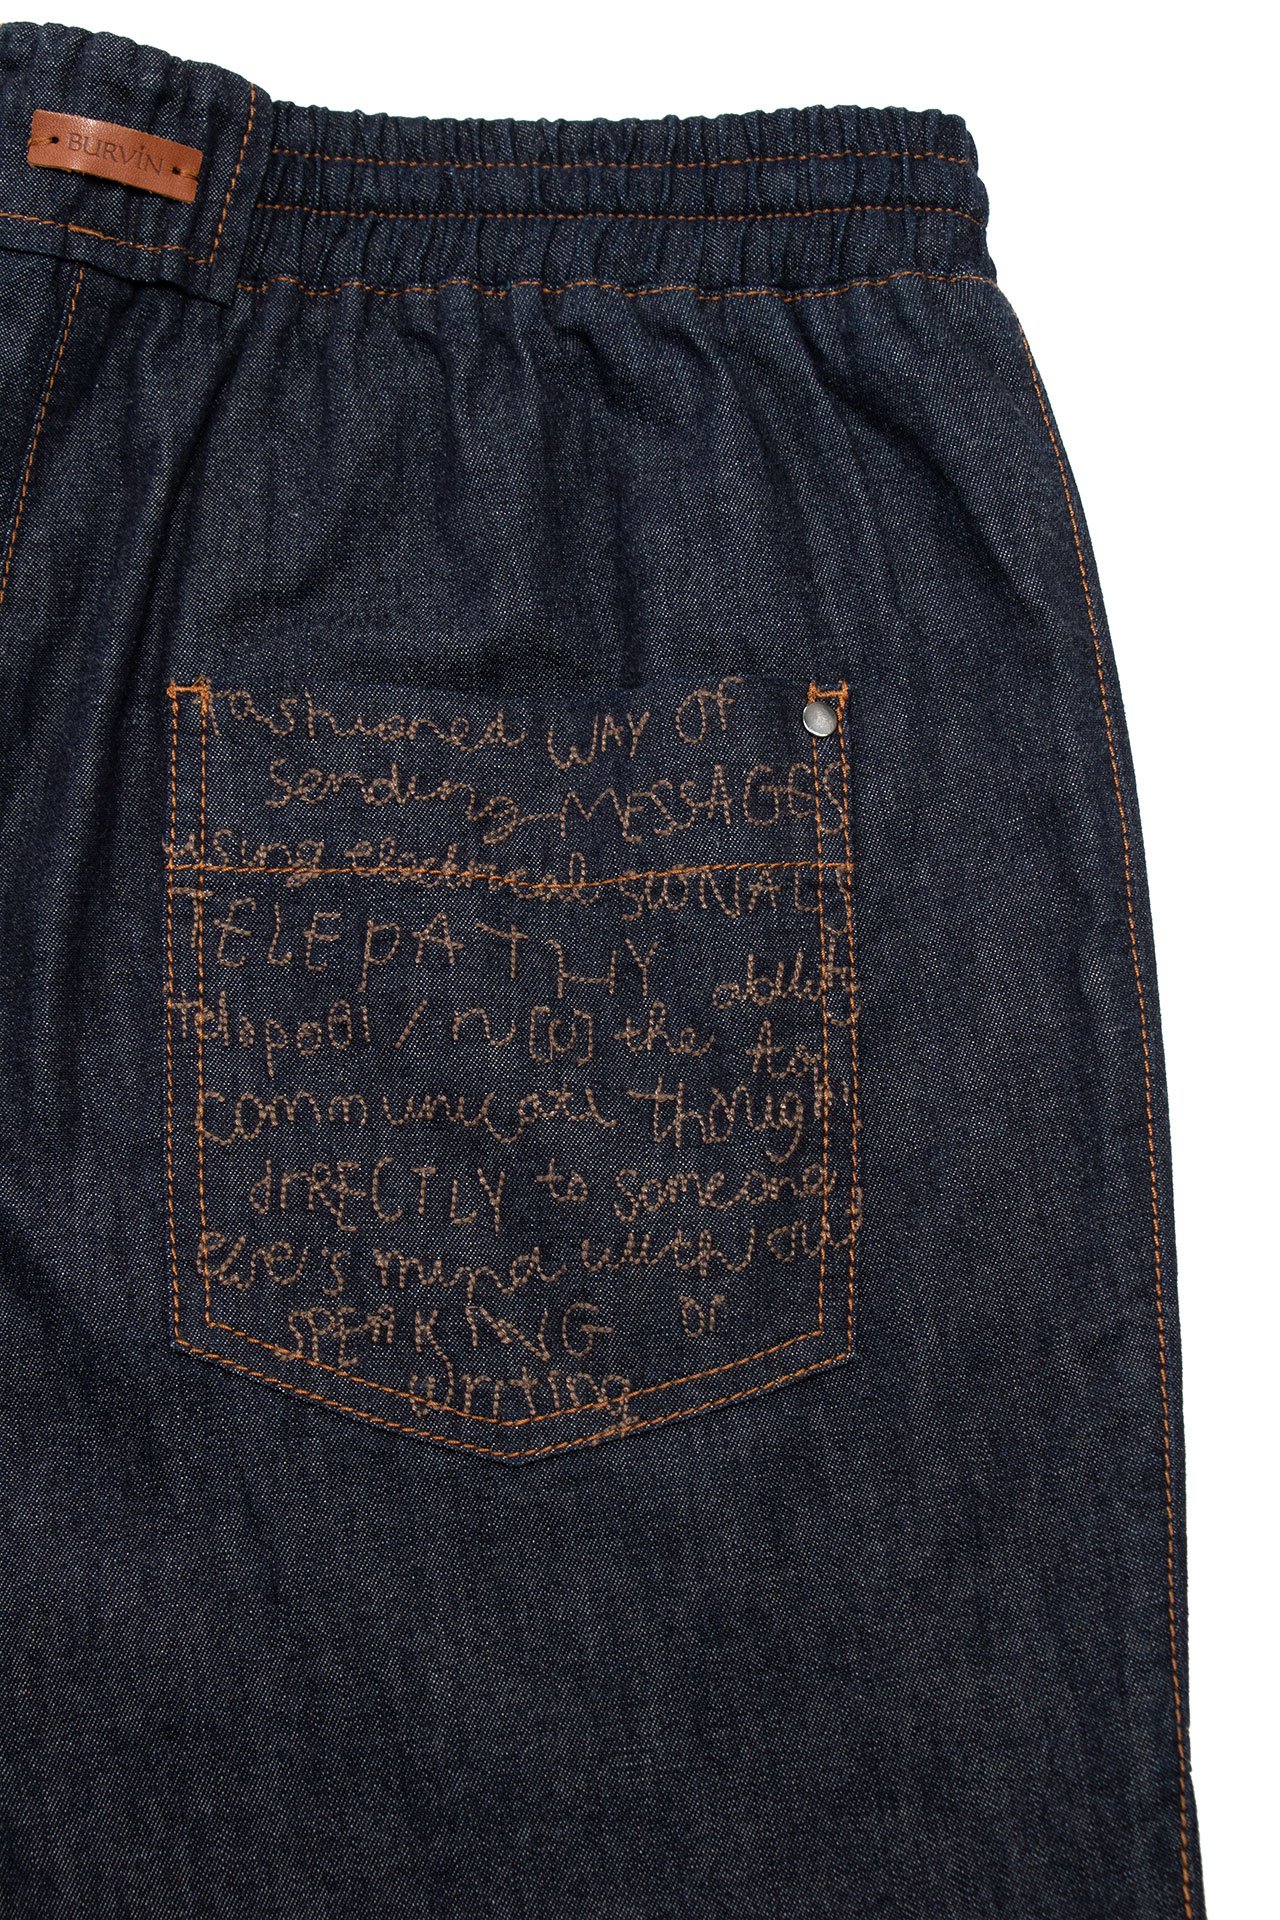 BURVIN
fashioned WAY OF
sending MESSAGES
using electrical SIGNALS
TELEPATHY
ability
/ n [U] the
communicate though
dIRECTLY to someone
else's mind without
SPEAKING or
writing